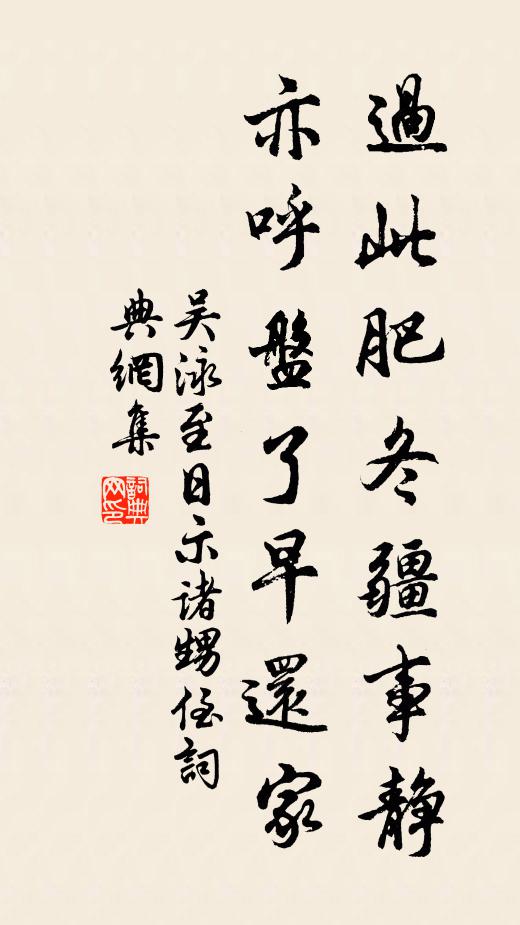 過此肥冬疆事靜
亦呼盤了早還家
吴泳至日示諸甥侄詞
典網集
詞典
网印